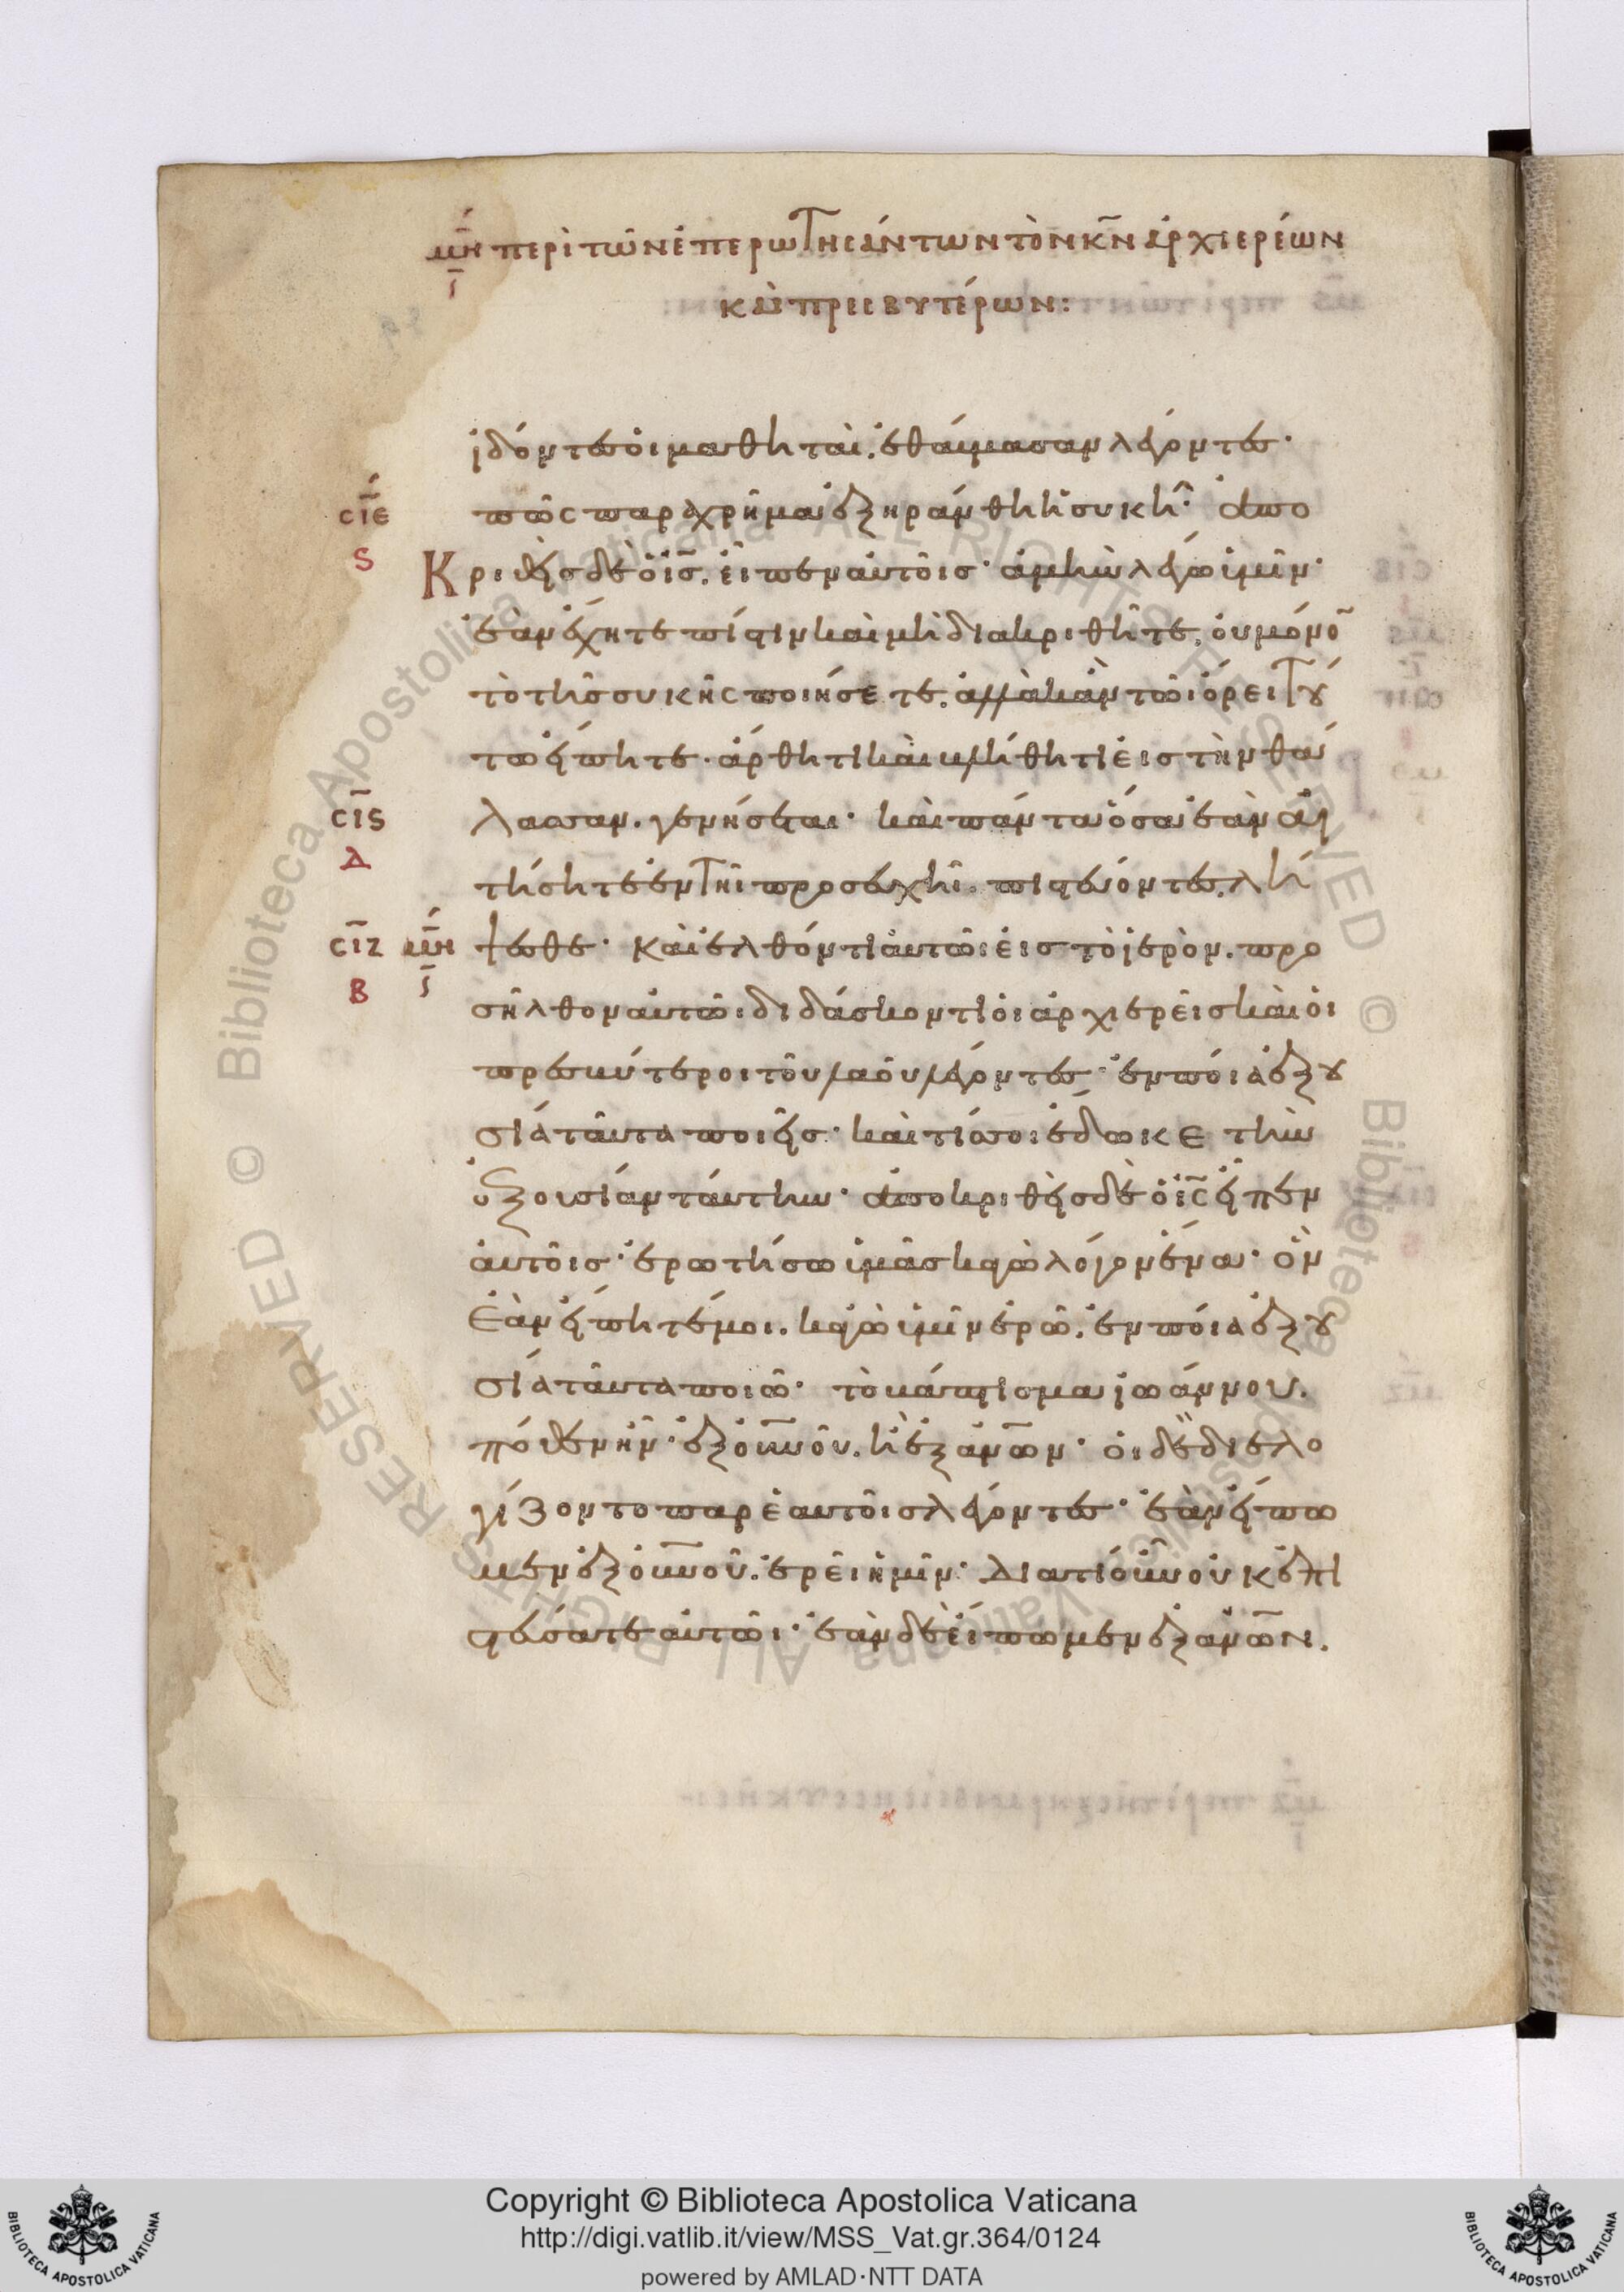 μη περὶ τῶν ἐπερωτησάντων τὸν κ̅ν̅ ἀρχιερέων
καὶ πρεσβυτέρων:
ἰδόντες οἱ μαθηταὶ, ἐθαύμασαν λέγοντες·
σ̅ι̅ε̅ πῶς παραχρῆμα ἐξηράνθη ἡ συκῆ· ἀπο
ς Κριθεὶς δὲ ὁ ι̅ς̅. εἶπεν αὐτοῖς· ἀμὴν λέγω ὑμῖν·
ἐὰν ἔχητε πίστιν καὶ μὴ διακριθῆτε, οὐ μόνο̅
τὸ τῆς συκῆς ποιήσετε. ἀλλὰ κἂν τῶι ὄρει τού
τω εἴπητε· ἄρθητι καὶ βλήθητι εἰς τὴν θά
σ̅ι̅ς̅ λασσαν. γενήσεται· καὶ πάντα ὅσα ἐὰν αἰ
Δ
τήσητε ἐν τῆι προσευχῆι. πιστεύοντες, λή
σ̅ι̅ζ̅ μη ψεσθε· Καὶ ἐλθόντι αὐτῶι εἰς τὸ ἱερὸν. προ
Β ι
σῆλθον αὐτῶι διδάσκοντι οἱ ἀρχιερεῖς καὶ οἱ
πρεσβύτεροι τοῦ λαοῦ λέγοντες· ἐν ποία ἐξου
σία ταῦτα ποιεῖς· καὶ τίς σοι ἔδωκε τὴν
ἐξουσίαν ταύτην· ἀποκριθεὶς δὲ ὁ ι̅ς̅ εἶπεν
αὐτοῖς· ἐρωτήσω ὑμᾶς κἀγὼ λόγον ἕνα· ὃν
ἐὰν εἴπητέ μοι. κἀγὼ ὑμῖν ἐρῶ. ἐν ποία ἐξου
σία ταῦτα ποιῶ· τὸ βάπτισμα ἰωάννου.
πόθεν ἦν· ἐξ ο̅υ̅ν̅ο̅υ̅. ἢ ἐξ α̅ν̅ω̅ν̅· οἱ δὲ διελο
γίζοντο παρ ἑαυτοῖς λέγοντες· ἐὰν εἴπω
μεν ἐξ ο̅υ̅ν̅ο̅υ̅. ἐρεῖ ἡμῖν· Διατί οὖν οὐκ ἐπι
στεύσατε αὐτῶι· ἐὰν δὲ εἴπωμεν ἐξ α̅ν̅ω̅ν̅.
Copyright © Biblioteca Apostolica Vaticana
http://digi.vatlib.it/view/MSS_Vat.gr.364/0124
powered by AMLAD·NTT DATA